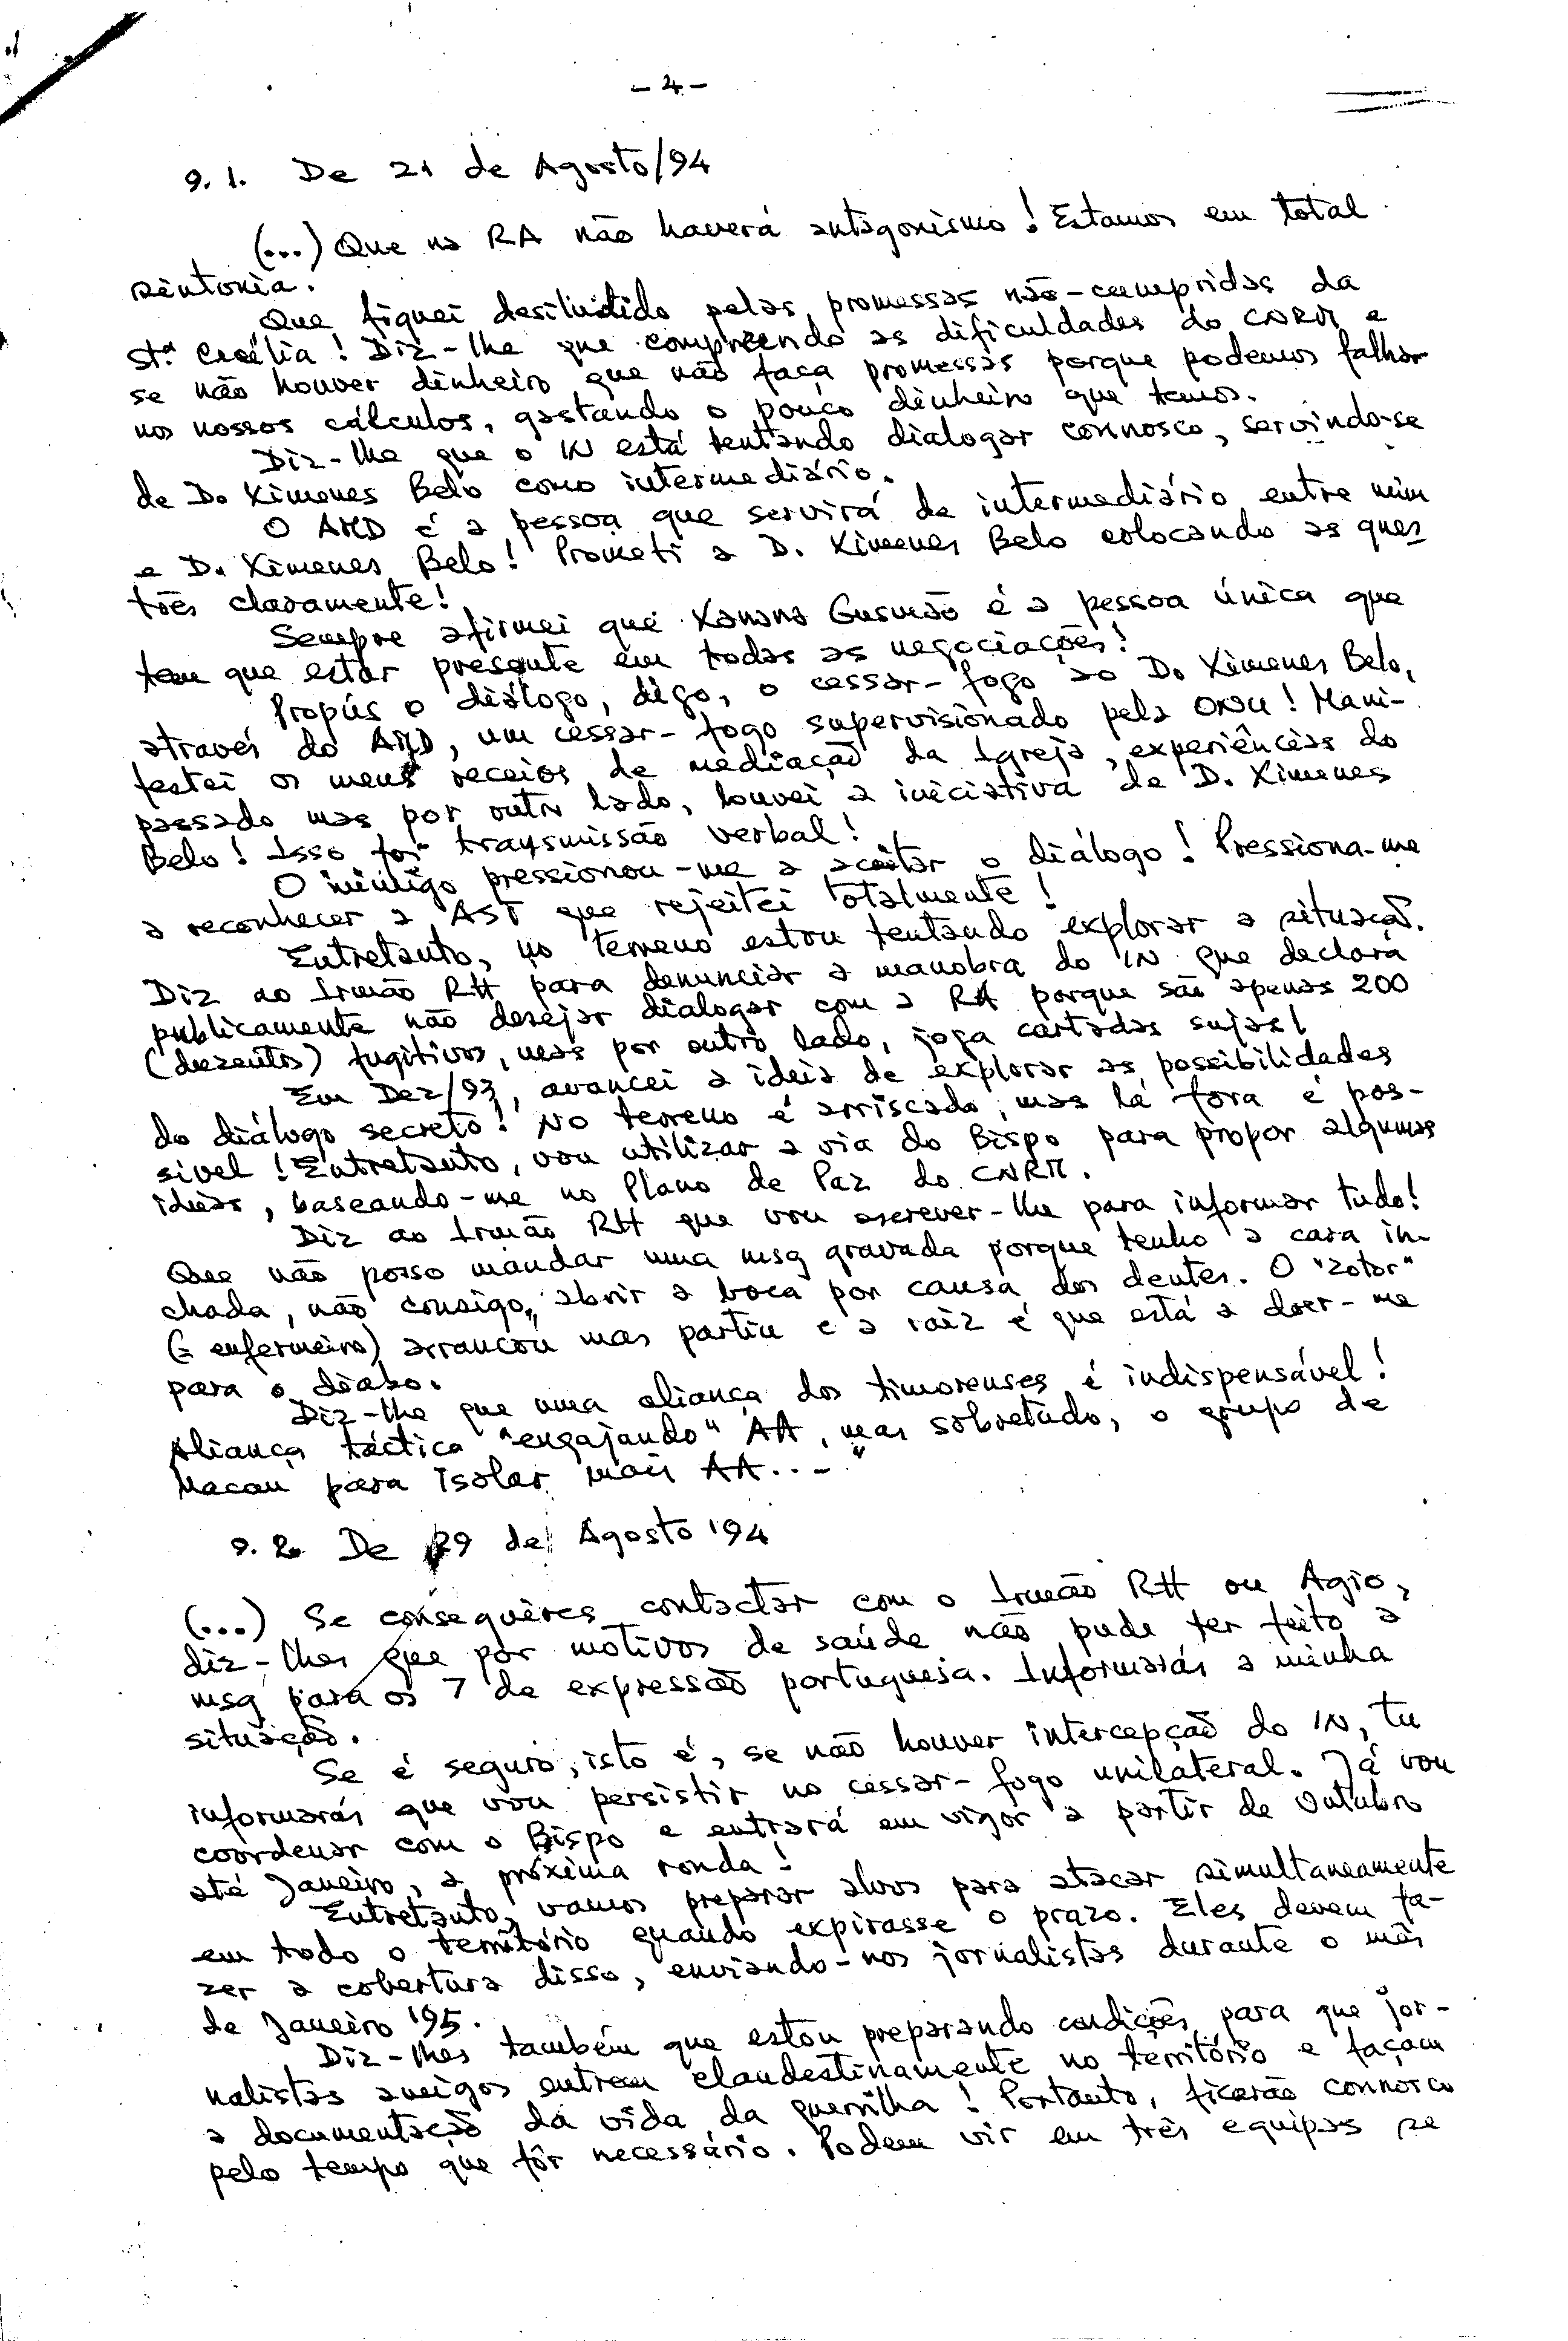 - 4 -
9.1. De 21 de Agosto/94
(...) Que na RA não haverá antagonismo! Estamos em total
sintonia.
Que fiquei desiludido pelas promessas não-cumpridas da
Stª Cecília! Diz-lhe que compreendo as dificuldades do CNRM e
se não houver dinheiro que não faça promessas porque podemos falhar
nos nossos cálculos, gastando o pouco dinheiro que temos.
Diz-lhe que o IN está tentando dialogar connosco, servindo-se
de D. Ximenes Belo como intermediário.
O AMD é a pessoa que servirá de intermediário entre mim
e D. Ximenes Belo! Prometi a D. Ximenes Belo colocando as ques
tões claramente!
Sempre afirmei que Xanana Gusmão é a pessoa única que
tem que estar presente em todas as negociações!
Propús o diálogo, digo, o cessar-fogo ao D. Ximenes Belo,
através do AMD, um cessar-fogo supervisionado pela ONU! Mani-
festei os meus receios de mediação da Igreja, experiências do
passado mas por outro lado, louvei a iniciativa de D. Ximenes
Belo! Isso foi transmissão verbal!
O inimigo pressionou-me a aceitar o diálogo! Pressiona-me
a reconhecer a AST que rejeitei totalmente!
Entretanto, no terreno estou tentando explorar a situação.
Diz ao Irmão RH para denunciar a manobra do IN que declara
publicamente não desejar dialogar com a RA porque são apenas 200
(duzentos) fugitivos, mas por outro lado, joga cartadas sujas!
Em Dez/93, avancei a ideia de explorar as possibilidades
do diálogo secreto! No terreno é arriscado, mas lá fora é pos-
sivel! Entretanto, vou utilizar a via do Bispo para propor algumas
ideias, baseando-me no Plano de Paz do CNRM.
Diz ao Irmão RH que vou escrever-lhe para informar tudo!
Que não posso mandar uma msg gravada porque tenho a cara in-
chada, não consigo abrir a boca por causa dos dentes. O "zotor"
(= enfermeiro) arrancou mas partiu e a raiz é que está a doer-me
para o diabo.
Diz-lhe que uma aliança dos timorenses é indispensável!
Aliança táctica "engajando" AA, mas sobretudo, o grupo de
Macau para isolar mais AA..."
9.2. De 29 de Agosto '94
(...) Se conseguires contactar com o Irmão RH ou Agio,
diz-lhes que por motivos de saúde não pude ter feito a
msg para os 7 de expressão portuguesa. Informarás a minha
situação.
Se é seguro, isto é, se não houver intercepção do IN, tu
informarás que vou persistir no cessar-fogo unilateral. Já vou
coordenar com o Bispo e entrará em vigor a partir de Outubro
até Janeiro, a próxima ronda!
Entretanto, vamos preparar alvos para atacar simultaneamente
em todo o território quando expirasse o prazo. Eles devem fa-
zer a cobertura disso, enviando-nos jornalistas durante o mês
de Janeiro '95.
Diz-lhes também que estou preparando condições para que jor-
nalistas amigos entrem clandestinamente no território e façam
a documentação da vida da guerrilha! Portanto, ficarão connosco
pelo tempo que fôr necessário. Podem vir em três equipas se